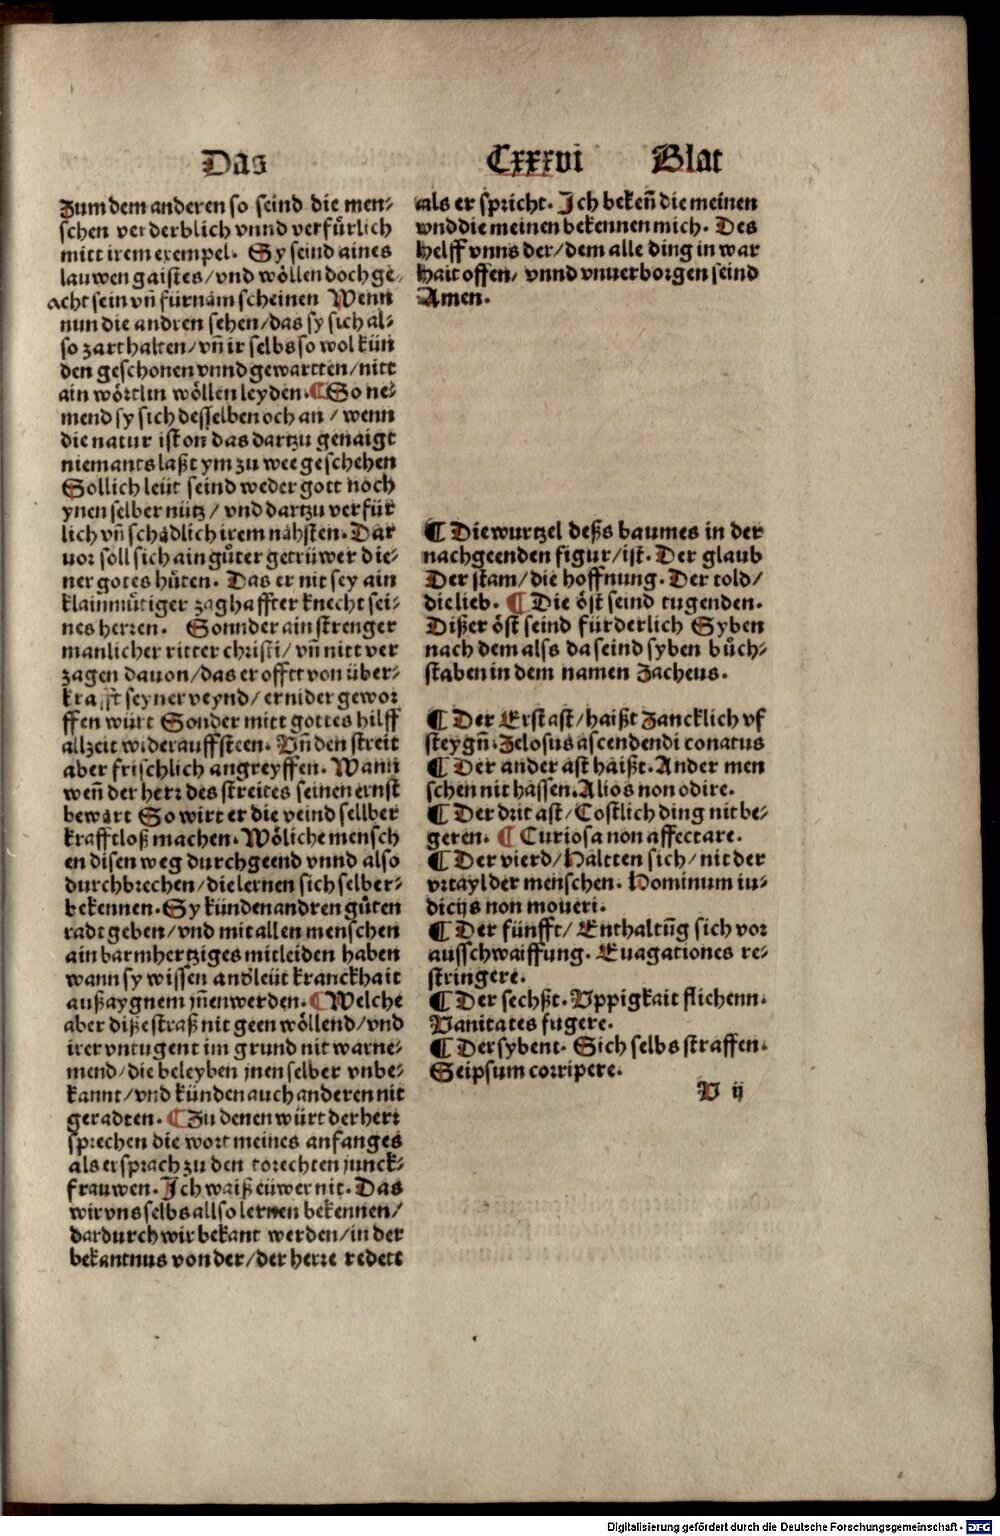 Das Cxxxvi Blat
Zum dem anderen so seind die men⸗
schen verderblich vnnd verfürlich
mitt irem exempel. Sy seind aines
lauwen gaistes/vnd wöllen doch ge⸗
acht sein vñ fürnäm scheinen Wenn
nun die andren sehen/das sy sich al⸗
so zart halten/vñ ir selbs so wol kün
den geschonen vnnd gewartten/nitt
ain wörtlin wöllen leyden. ¶ So ne⸗
mend sy sich desselben och an/wenn
die natur ist on das dartzu genaigt
niemants laßt ym zu wee geschehen
Sollich leüt seind weder gott noch
ynen selber nütz/vnd dartzu verfür
lich vñ schådlich irem nåhsten. Dar
uor soll sich ain gůter getrüwer die⸗
ner gotes hüten. Das er nit sey ain
klainmůtiger zaghaffter knecht sei⸗
nes herren. Sonnder ain strenger
manlicher ritter christi/vñ nitt ver
zagen dauon/das er offtt von über⸗
krafft seyner veynd/ernider gewor
ffen würt Sonder mitt gottes hilff
allzeit widerauffsteen. Vñ den streit
aber frischlich angreyffen. Wann
weñ der herr des streites seinen ernst
bewårt So wirt er die veind sellber
krafftloß machen. Wöliche mensch
en disen weg durchgeend vnnd also
durchbrechen/die lernen sich selber⸗
bekennen. Sy künden andren gůten
radt geben/vnd mit allen menschen
ain barmhertziges mitleiden haben
wann sy wissen andleüt kranckhait
auß aygnem jñen werden. ¶ Welche
aber diße straß nit geen wöllend/vnd
irer vntugent im grund nit warne⸗
mend/die beleyben jnen selber vnbe⸗
kannt/vnd künden auch anderen nit
geradten. ¶ Zu denen würt der herr
sprechen die wort meines anfanges
als er sprach zu den torechten junck⸗
frauwen. Ich waiß eüwer nit. Das
wir vns selbs allso lernen bekennen/
dardurch wir bekant werden/in der
bekantnus von der/der herre redett
als er spricht. Ich bekeñ die meinen
vnd die meinen bekennen mich. Des
helff vnns der/dem alle ding in war
hait offen/vnnd vnuerborgen seind
Amen.
¶ Die wurtzel deßs baumes in der
nachgeenden figur/ist. Der glaub
Der stam/die hoffnung. Der told/
die lieb. ¶ Die öst seind tugenden.
Dißer öst seind fürderlich Syben
nach dem alls da seind syben bůch⸗
staben in dem namen Zacheus.
¶ Der Erst ast/haißt Zancklich vf
steygñ. Zelosus ascendendi conatus
¶ Der ander ast haißt. Ander men
schen nit hassen. Alios non odire.
¶ Der drit ast/Costlich ding nit be⸗
geren. ¶ Curiosa non affectare.
¶ Der vierd/Haltten sich/nit der
vrtayl der menschen. Hominum iu⸗
dicijs non moueri.
¶ Der fünfft/Enthaltūg sich vor
ausschwaiffung. Euagationes re⸗
stringere.
¶ Der sechßt. Vppigkait flichenn.
Vanitates fugere.
¶ Der sybent. Sich selbs straffen.
Seipsum corripere.
V ij
Digitalisierung gefördert durch die Deutsche Forschungsgemeinschaft - DFG